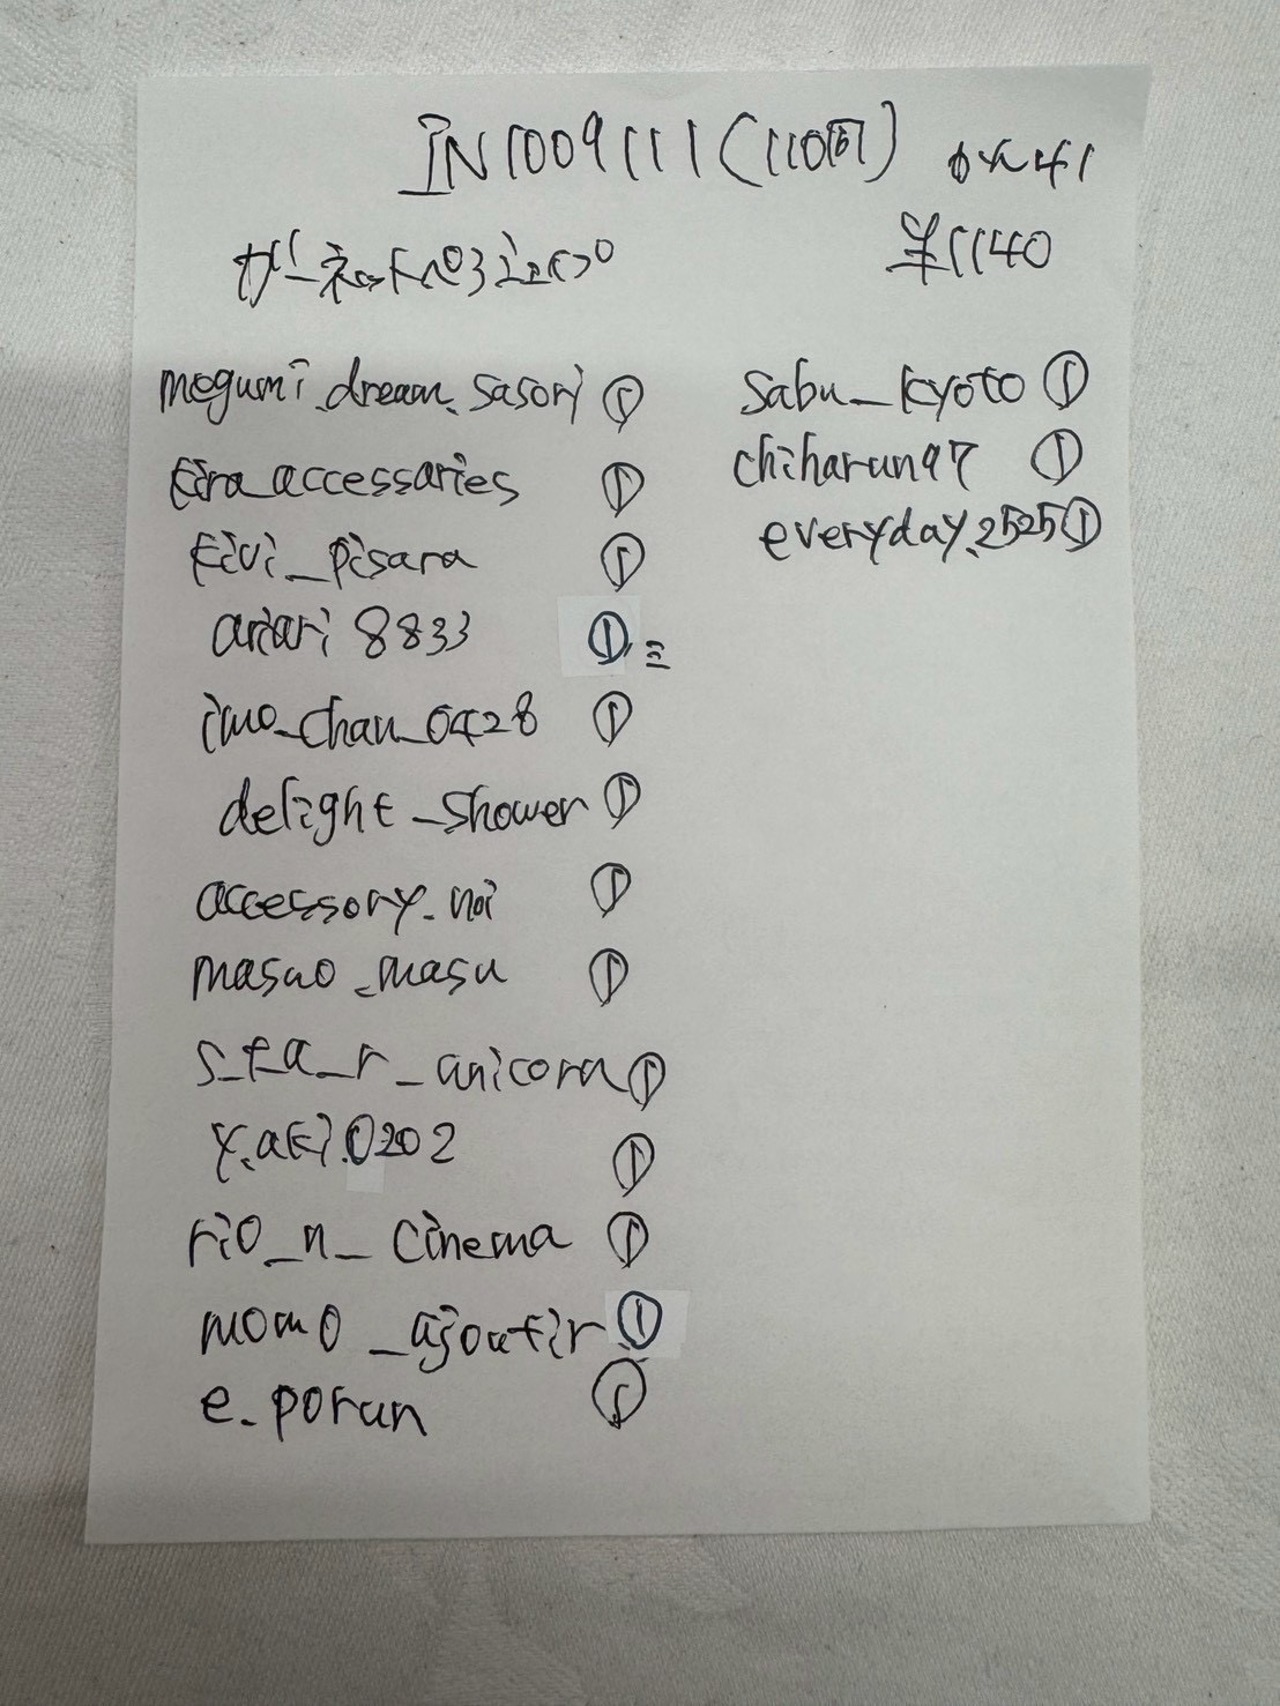 IN1009111(110回)
¥1140
megumi.dream.sasori ①
kira_accessaries ①
kivi_pisara ①
ariari8833 ①
imo_chan_0428 ①
delight_shower ①
accessory_noi ①
masao_masu ①
s_t_a_r_anicora ①
y.aki.0202 ①
rio_n_cinema ①
momo_ajoutir ①
e_porun ①
sabu_kyoto ①
chiharun97 ①
everyday.2525 ①